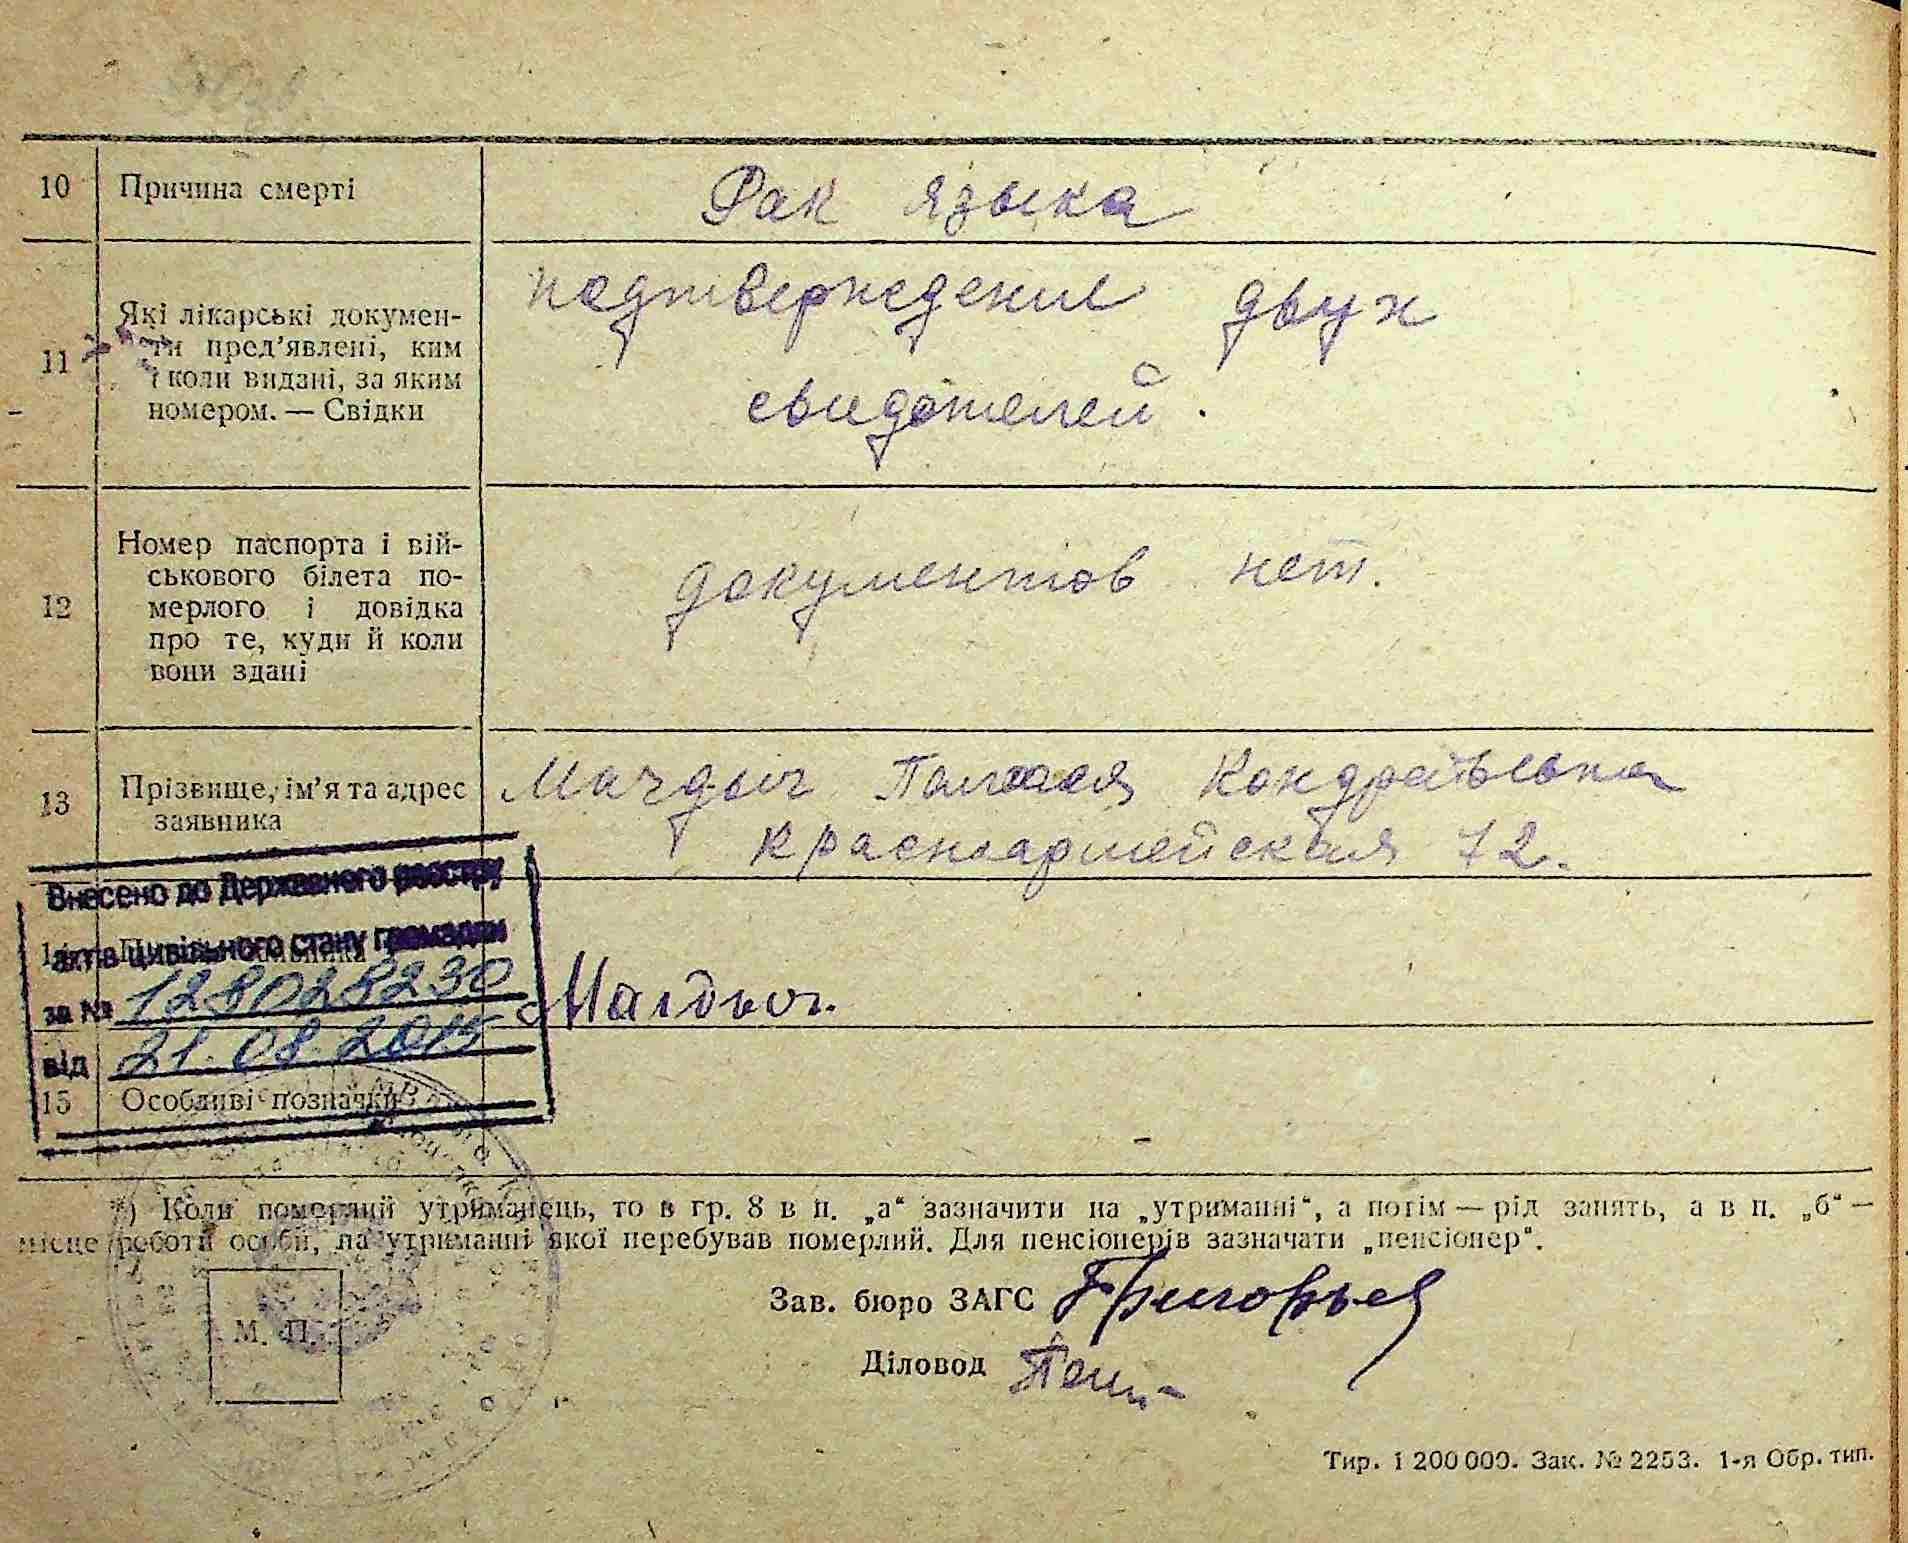 10
Причина смерті
Рак языка
11
Які лікарські докумен-
ти пред’явлені, ким
і коли видані, за яким
номером. — Свідки
подтверждение двух
свидетелей.
12
Номер паспорта і вій-
ськового білета по-
мерлого і довідка
про те, куди й коли
вони здані
документов нет.
13
Прізвище, ім’я та адрес
заявника
Кондратьевна
Красноармейская 72.
Внесено до Державного реєстру
актів цивільного стану громадян
за № 128028230
від 21.08.2015
15
Особливі позначки
*) Коли померлий утриманець, то в гр. 8 в п. „а“ зазначити на „утриманні“, а потім — рід занять, а в п. „б“ —
місце роботи особи, на утриманні якої перебував померлий. Для пенсіонерів зазначати „пенсіонер“.
Зав. бюро ЗАГС
М. П.
Діловод
Тир. 1 200 000. Зак. № 2253. 1-я Обр. тип.